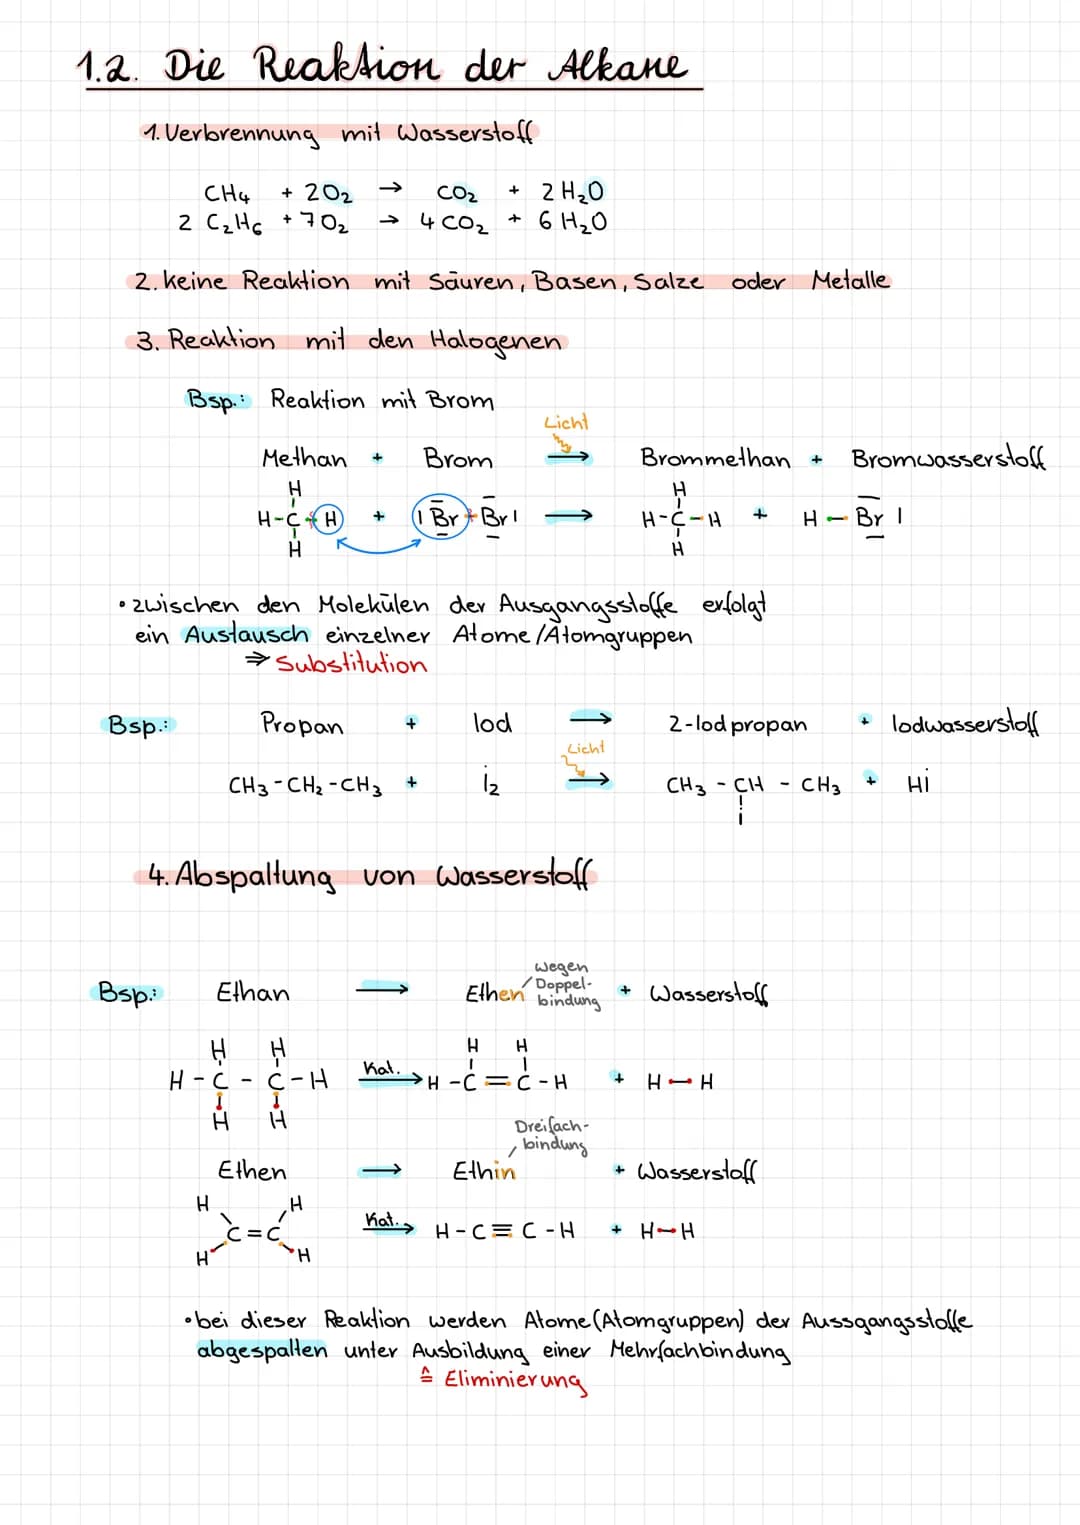 1.2. Die Reaktion der Alkane
1. Verbrennung mit Wasserstoff
CH₄ + 2O₂ → CO₂ + 2 H₂O
2 C₂H₆ + 7O₂ → 4 CO₂ + 6 H₂O
2. keine Reaktion mit Säuren, Basen, Salze oder Metalle
3. Reaktion mit den Halogenen
Bsp.: Reaktion mit Brom
Licht
Methan + Brom → Brommethan + Bromwasserstoff
H H
H-C-H + | Br - Br | → H-C-H + H - Br |
H H
• zwischen den Molekülen der Ausgangsstoffe erfolgt
ein Austausch einzelner Atome/Atomgruppen
⇒ Substitution
Bsp.: Propan + Iod → 2-Iodpropan + Iodwasserstoff
Licht
CH₃ - CH₂ - CH₃ + i₂ → CH₃ - CH - CH₃ + Hi
i
4. Abspaltung von Wasserstoff
wegen
Doppel-
bindung
Bsp.: Ethan → Ethen + Wasserstoff
H H H H
H - C - C - H Kat. → H - C = C - H + H - H
H H
Dreifach-
bindung
Ethen → Ethin + Wasserstoff
H H
C = C Kat. → H - C ≡ C - H + H - H
H H
• bei dieser Reaktion werden Atome (Atomgruppen) der Aussgangsstoffe
abgespalten unter Ausbildung einer Mehrfachbindung
≙ Eliminierung